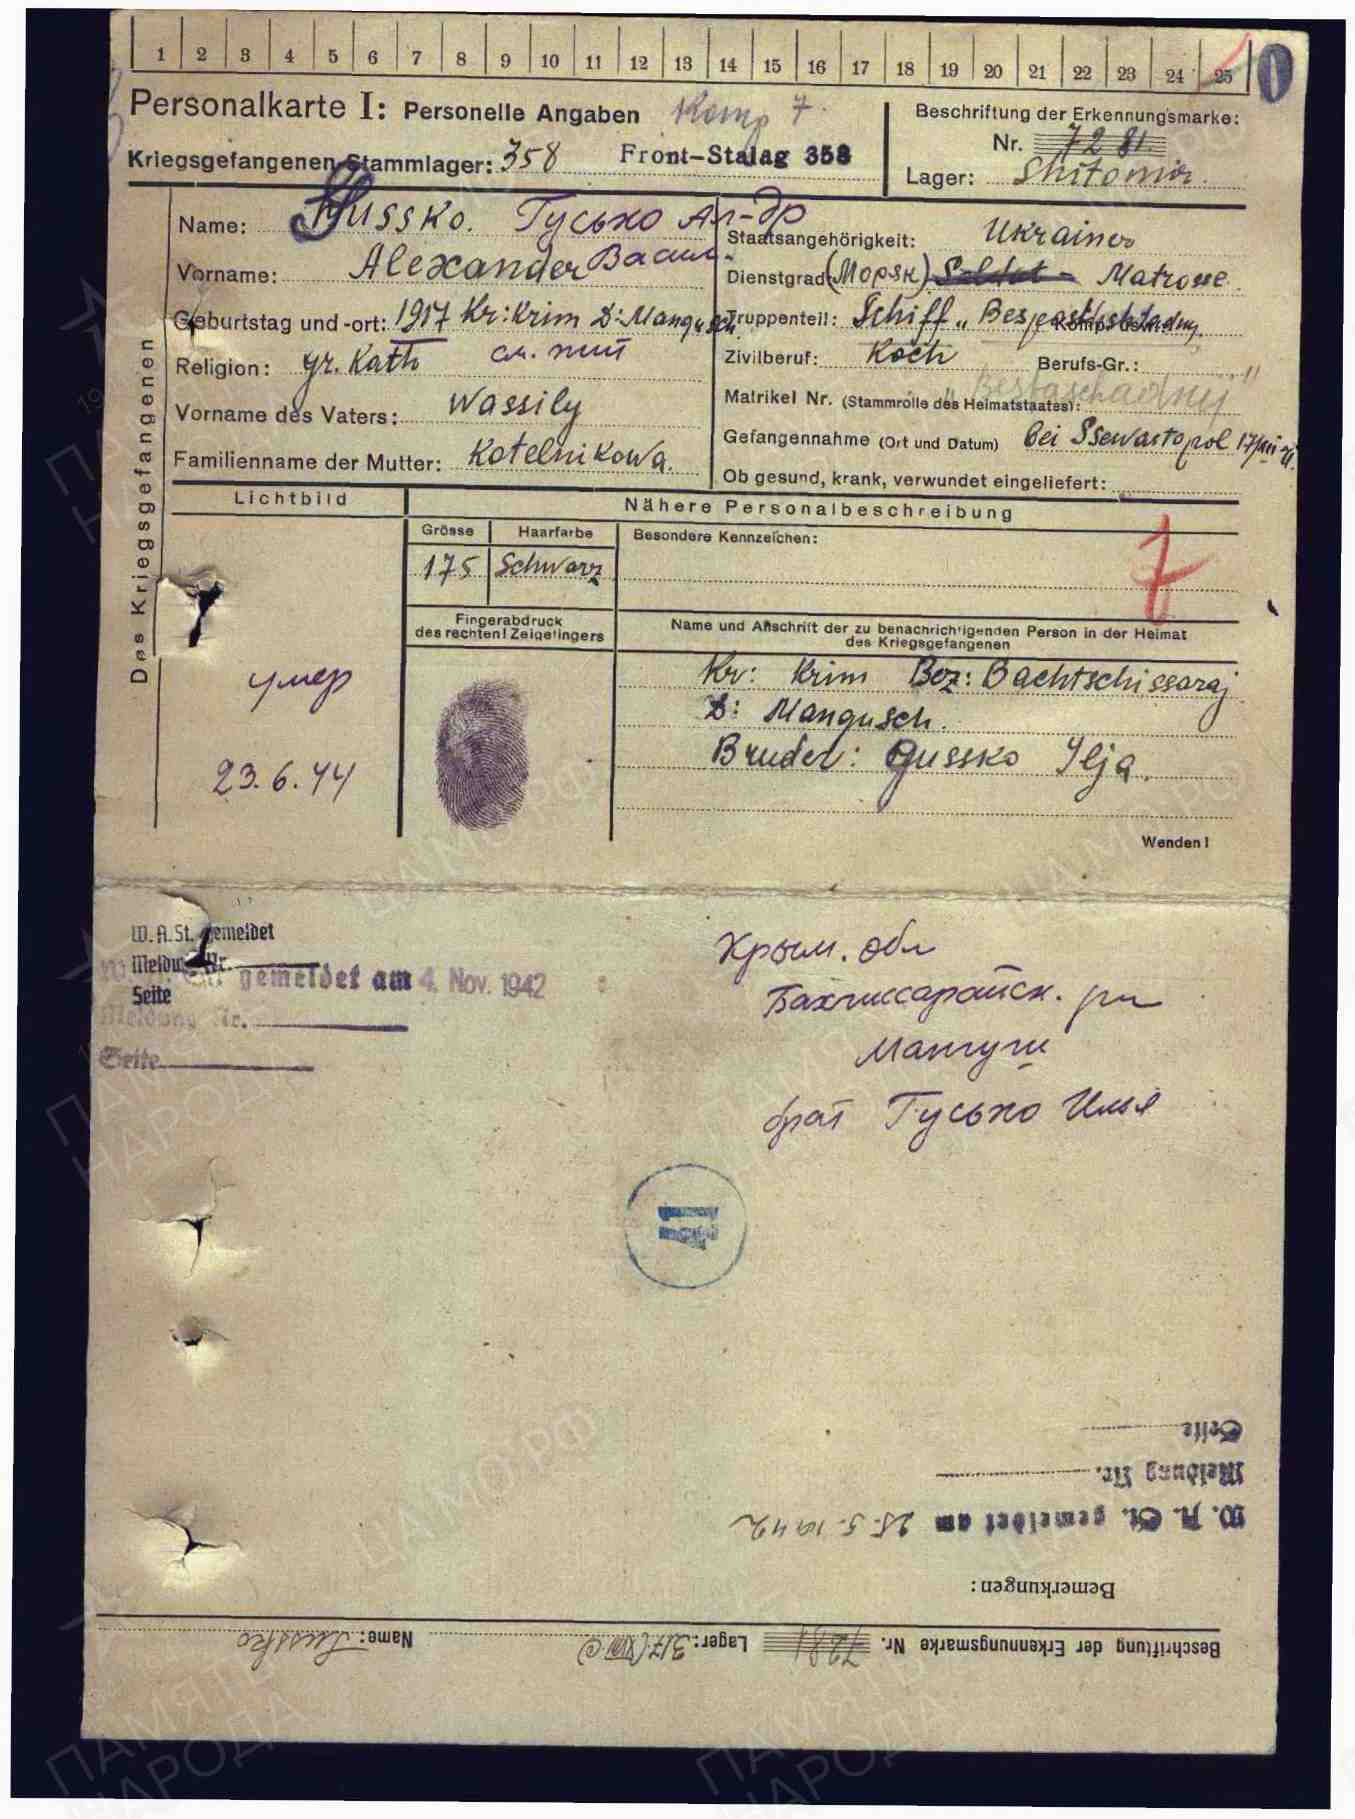 1 2 3 4 5 6 7 8 9 10 11 12 13 14 15 16 17 18 19 20 21 22 23 24 25
0
Personalkarte I: Personelle Angaben Komp 7.
Beschriftung der Erkennungsmarke:
Nr. 7281.
Kriegsgefangenen-Stammlager: 358 Front-Stalag 358
Lager: Shitomir.
Des Kriegsgefangenen
Name: Hussko. Гусько Ал-др
Staatsangehörigkeit: Ukrainer
Vorname: Alexander Васил.
Dienstgrad: (Моряк) Soldat Matrose.
Geburtstag und -ort: 1917 Kr: Krim D: Mangusch
Truppenteil: Schiff „Bespostschadny.
Religion: gr. Kath
Zivilberuf: Koch Berufs-Gr.:
Vorname des Vaters: Wassily
Matrikel Nr. (Stammrolle des Heimatstaates): "Bestaschadnij"
Familienname der Mutter: Kotelnikowa.
Gefangennahme (Ort und Datum) bei Ssewastopol
Ob gesund, krank, verwundet eingeliefert:
Lichtbild
Nähere Personalbeschreibung
Grösse Haarfarbe Besondere Kennzeichen:
175 Schwarz
7
Fingerabdruck
des rechten! Zeigefingers
Name und Anschrift der zu benachrichtigenden Person in der Heimat
des Kriegsgefangenen
умер
23.6.44
Kr: Krim Bez: Bachtschissaraj
D: Mangusch.
Bruder: Gussko Ilja.
Wenden!
W.A.St. gemeldet
Meldung Nr.
Seite
gemeldet am 4. Nov. 1942
Meldung Nr.
Seite
Крым. обл
Бахчиссарайск. рн
Мангуш
брат Гусько Илья
41
Seite
Meldung Nr.
W. A. St. gemeldet am 25.5.1942
Bemerkungen:
Beschriftung der Erkennungsmarke Nr. 7281 Lager: 317 (XVIII C) Name: Gussko